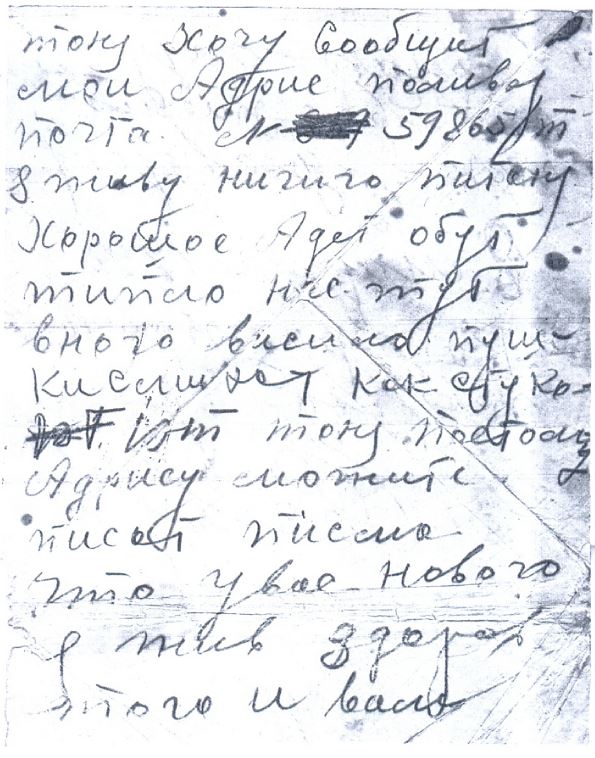 тоня Хочу Сообщит
мои Адрис полива
почта № 59865 т
я живу ничиго питаня
Хорошое Адет обут
типло нас тут
вного висило пуш-
ки слишат как стука-
ют тоня поетому
Адрису можите
писат писма
что у вас нового
я жив здоров
того и вам